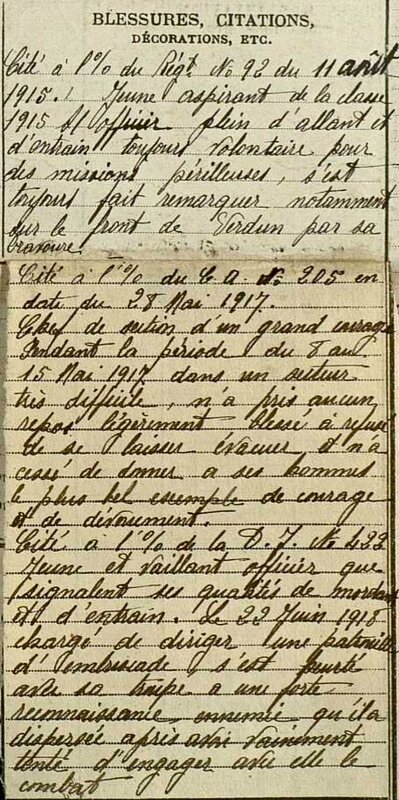 BLESSURES, CITATIONS,
DÉCORATIONS, ETC.
Cité à l'% du Régt. No 92 du 11 août
1915. Jeune aspirant de la classe
1915 St officier plein d'allant et
d'entrain toujours volontaire pour
des missions périlleuses, s'est
toujours fait remarquer notamment
sur le front de Verdun par sa
bravoure.
Cité à l'% du C A. No 205 en
date du 28 Mai 1917.
Chef de section d'un grand courage
Pendant la période du 8 au
15 Mai 1917 dans un secteur
très difficile, n'a pris aucun
repos légèrement blessé à refusé
de se laisser évacuer et n'a
cessé de donner a ses hommes
le plus bel exemple de courage
et de dévouement.
Cité à l'% de la D. I. No
Jeune et vaillant officier que
signalent ses qualités de mordant
et d'entrain. Le 22 Juin 1918
chargé de diriger une patrouille
d'embuscade, s'est heurté
avec sa troupe a une forte
reconnaissance ennemie qu'il a
dispersée après avoir vainement
tenté d'engager avec elle le
combat